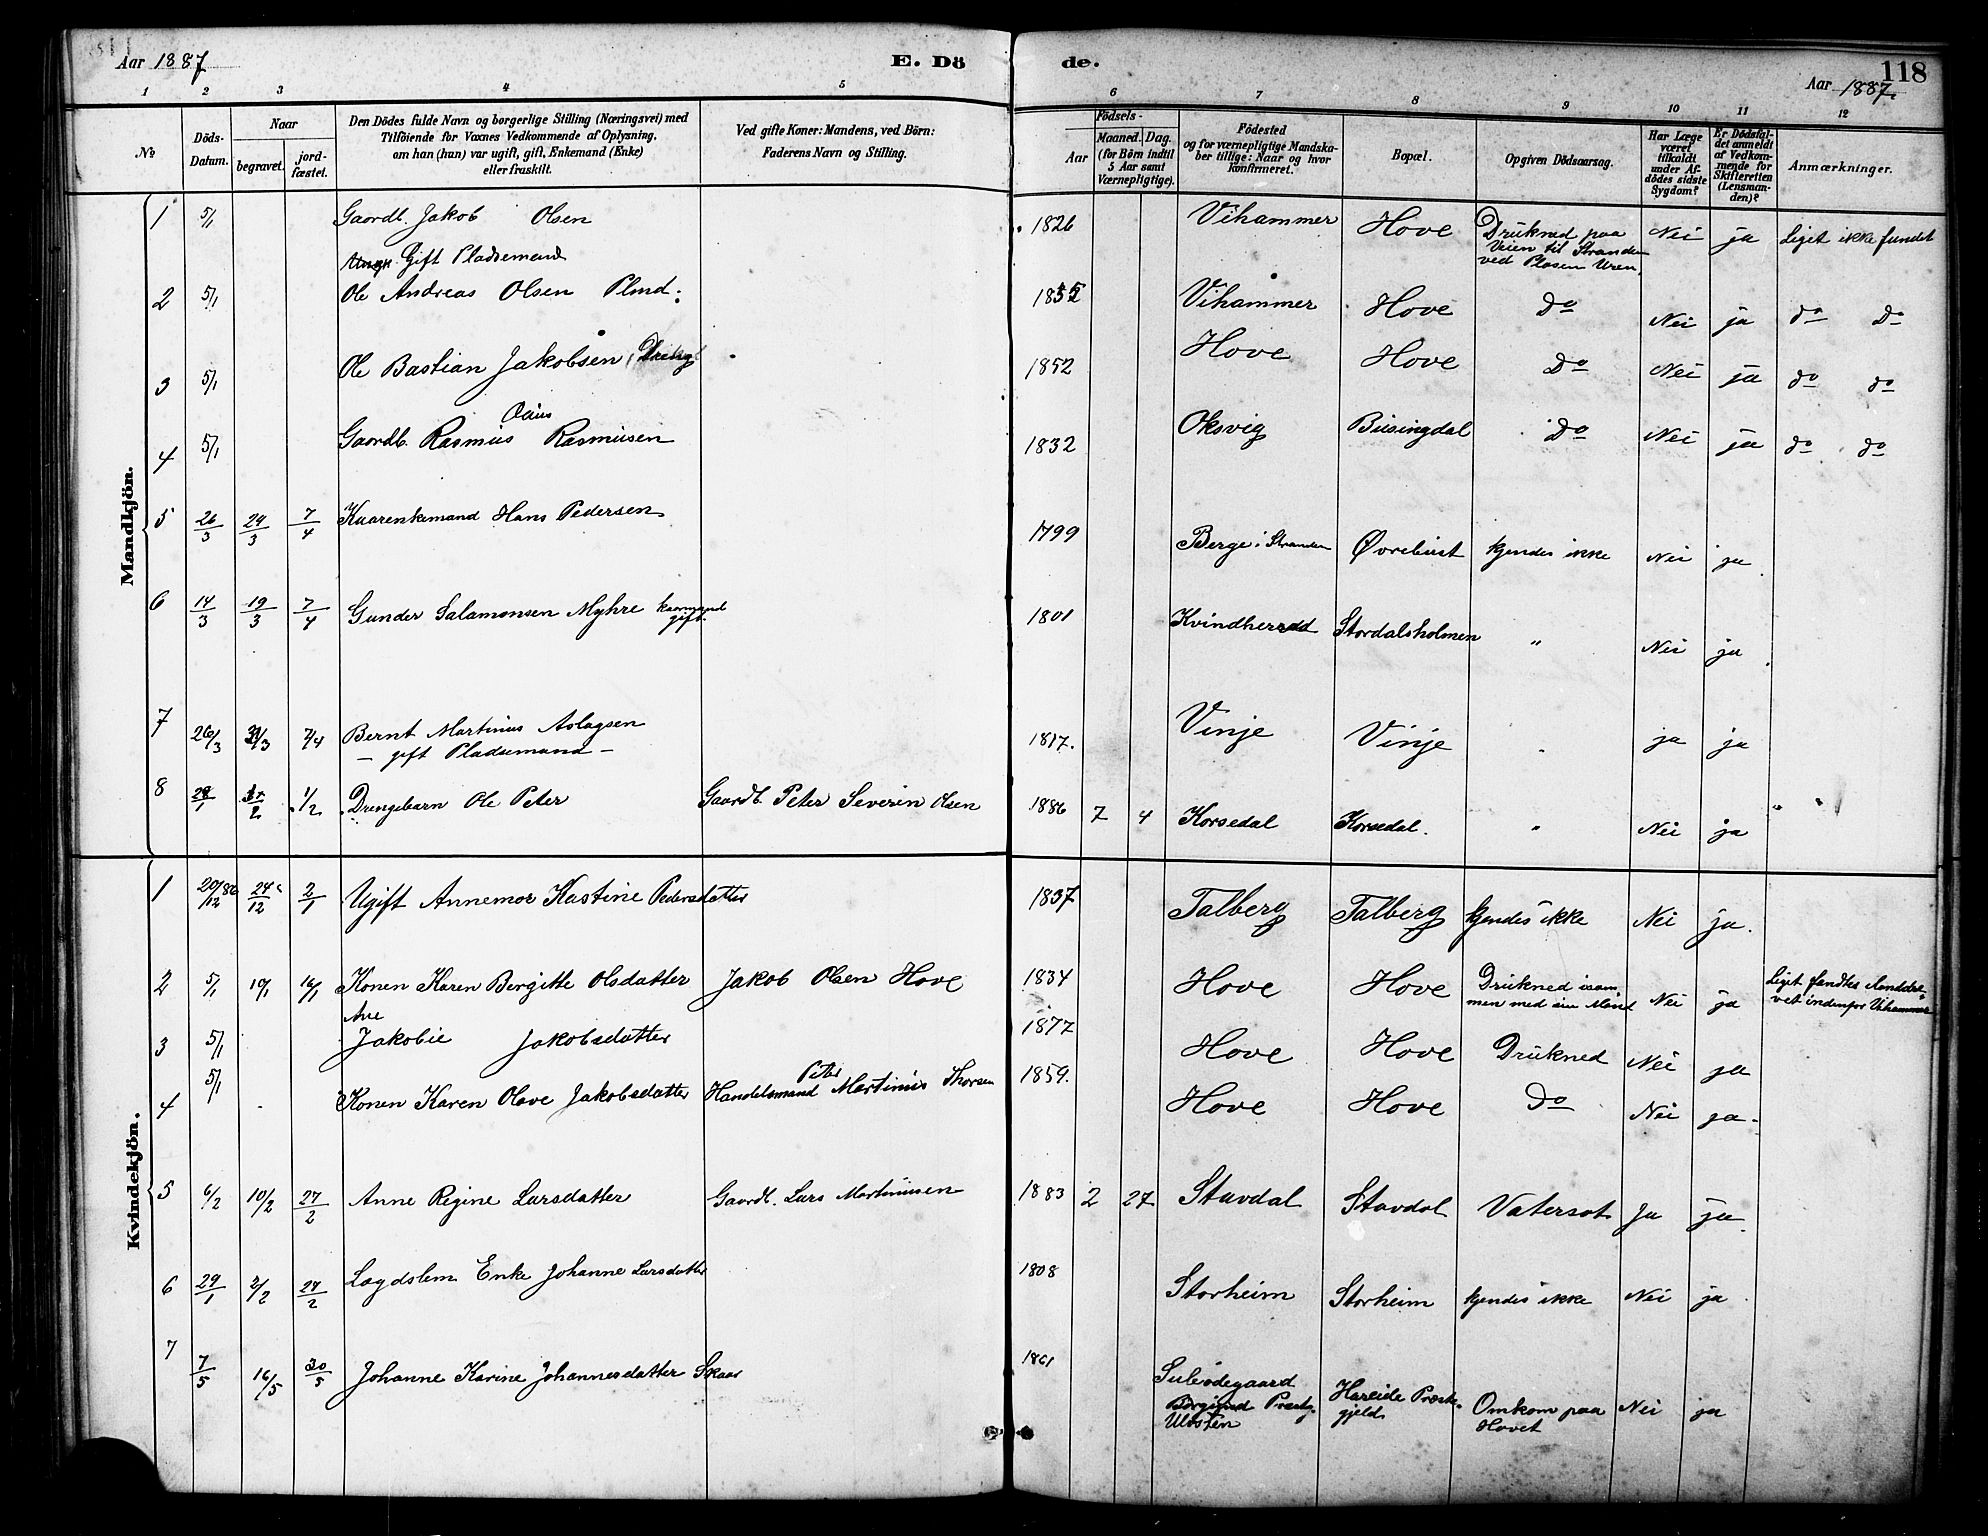 Aar 1887
E. Dö
de.
118
Aar 1887.
1 2 3 4 5 6 7 8 9 10 11 12
No
Döds-Datum.
Naar
begravet. jord-fæstet.
Den Dödes fulde Navn og borgerlige Stilling (Næringsvei) med
Tilföiende for Voxnes Vedkommende af Oplysning,
om han (hun) var ugift, gift, Enkemand (Enke)
eller fraskilt.
Ved gifte Koner: Mandens, ved Börn:
Faderens Navn og Stilling.
Födsels-
Aar
Maaned. Dag.
(for Börn indtil
5 Aar samt
Værnepligtige).
Födested
og for værnepligtige Mandska-
ber tillige: Naar og hvor
konfirmeret.
Bopæl.
Opgiven Dödsaarsag.
Har Læge
været
tilkaldt
under Af-
dödes sidste
Sygdom?
Er Dödsfal-
det anmeldt
af Vedkom-
mende for
Skifteretten
(Lensman-
den)?
Anmærkninger.
Mandkjön.
1 5/1 Gaardb. Jakob Olsen 1826 Vihammer Hove Drukned paa Veien til Stranden ved Pladsen Uren. Nei ja Liget ikke fundet
2 5/1 Gift Pladsemand
Ole Andreas Olsen Plmd. Vihammer Hove Do Nei ja do Do
3 5/1 Ole Bastian Jakobsen, 1852 Hove Hove Do Nei ja do do
4 5/1 Gaardb. Rasmus Rasmusen 1832 Oksvig Busingdal Do Nei ja do do
5 26/3 29/3 7/4 Kaarenkemand Hans Pedersen 1799 Berge i Stranden Øvrebust kjendes ikke Nei ja
6 14/3 19/3 7/4 Gunder Salamonsen Myhre kaarmand gift. 1801 Kvindherred Stordalsholmen " Nei ja
7 26/3 31/3 7/4 Bernt Martinus Aslagsen
– gift Pladsemand – 1817. Vinje Vinje " ja ja
8 28/1 1/2 Drengebarn Ole Peter Gaardb. Peter Severin Olsen 1886 7 4 Korsedal Korsedal. " Nei ja " "
Kvindekjön.
1 20/12 86 24/12 2/1 Ugift Annemor Kastine Pedersdatter 1837 Talberg Talberg kjendes ikke Nei ja.
2 5/1 10/1 16/1 Konen Karen Bergitte Olsdatter Jakob Olsen Hove 1834 Hove Hove Drukned isam-
men med sin Mand Nei ja Liget fandtes indenfor Vihammer
3 5/1 Ane
Jakobie Jakobsdatter 1877 Hove Hove Drukned Nei ja
4 5/1 Konen Karen Olave Jakobsdatter Handelsmand Peter Martinus Thorsen 1859. Hove Hove Do Nei ja.
5 6/2 10/2 27/2 Anne Regine Larsdatter Gaardb. Lars Martinusen 1883 2 27 Stavdal Stavdal Vatersot Ja ja.
6 29/1 2/2 27/2 Lægdslem Enke Johanne Larsdatter 1808 Storheim Storheim kjendes ikke Nei ja
7 7/5 16/5 30/5 Johanne Karine Johannesdatter Skaar 1861 Suleødegaard
Borgund Præstg.
Ulvsten Hareide Præste-
gjeld Omkom paa
Havet Nei ja